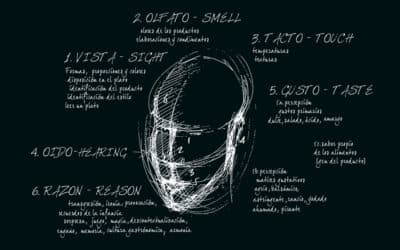 2. OLFATO - SMELL
olores de los productos
elaboraciones y condimentos
3. TACTO - TOUCH
temperaturas
texturas
1. VISTA - SIGHT
Formas, proporciones y colores
disposición en el plato
identificación del producto
identificación del estilo
leer un plato
5. GUSTO - TASTE
1ª percepción
gustos primarios
dulce, salado, ácido, amargo
4. OIDO - HEARING
6. RAZON - REASON
transgresión, ironía, provocación,
recuerdos de la infancia
sorpresa, juego, magia, descontextualización,
engaño, memoria, cultura gastronómica, armonía.
sabor propio
de los alimentos
2ª percepción
matices gustativos
agrio, balsámico,
astringente, rancio,
ahumado, picante
6
2
1
3
4
5